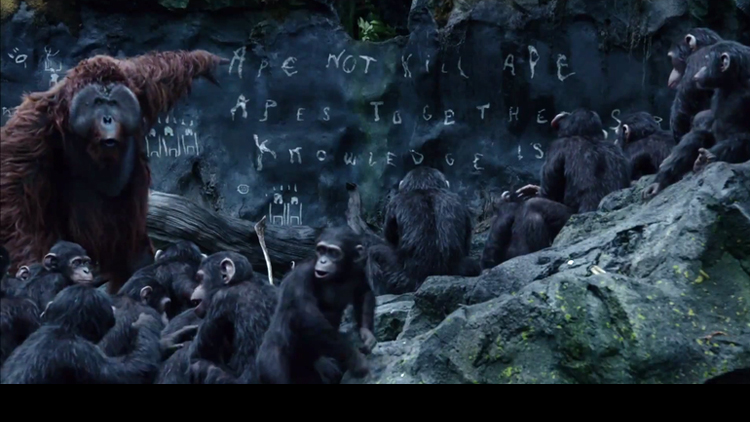 APE NOT KILL APE
APES TOGETHE S
KNOWLEDGE IS